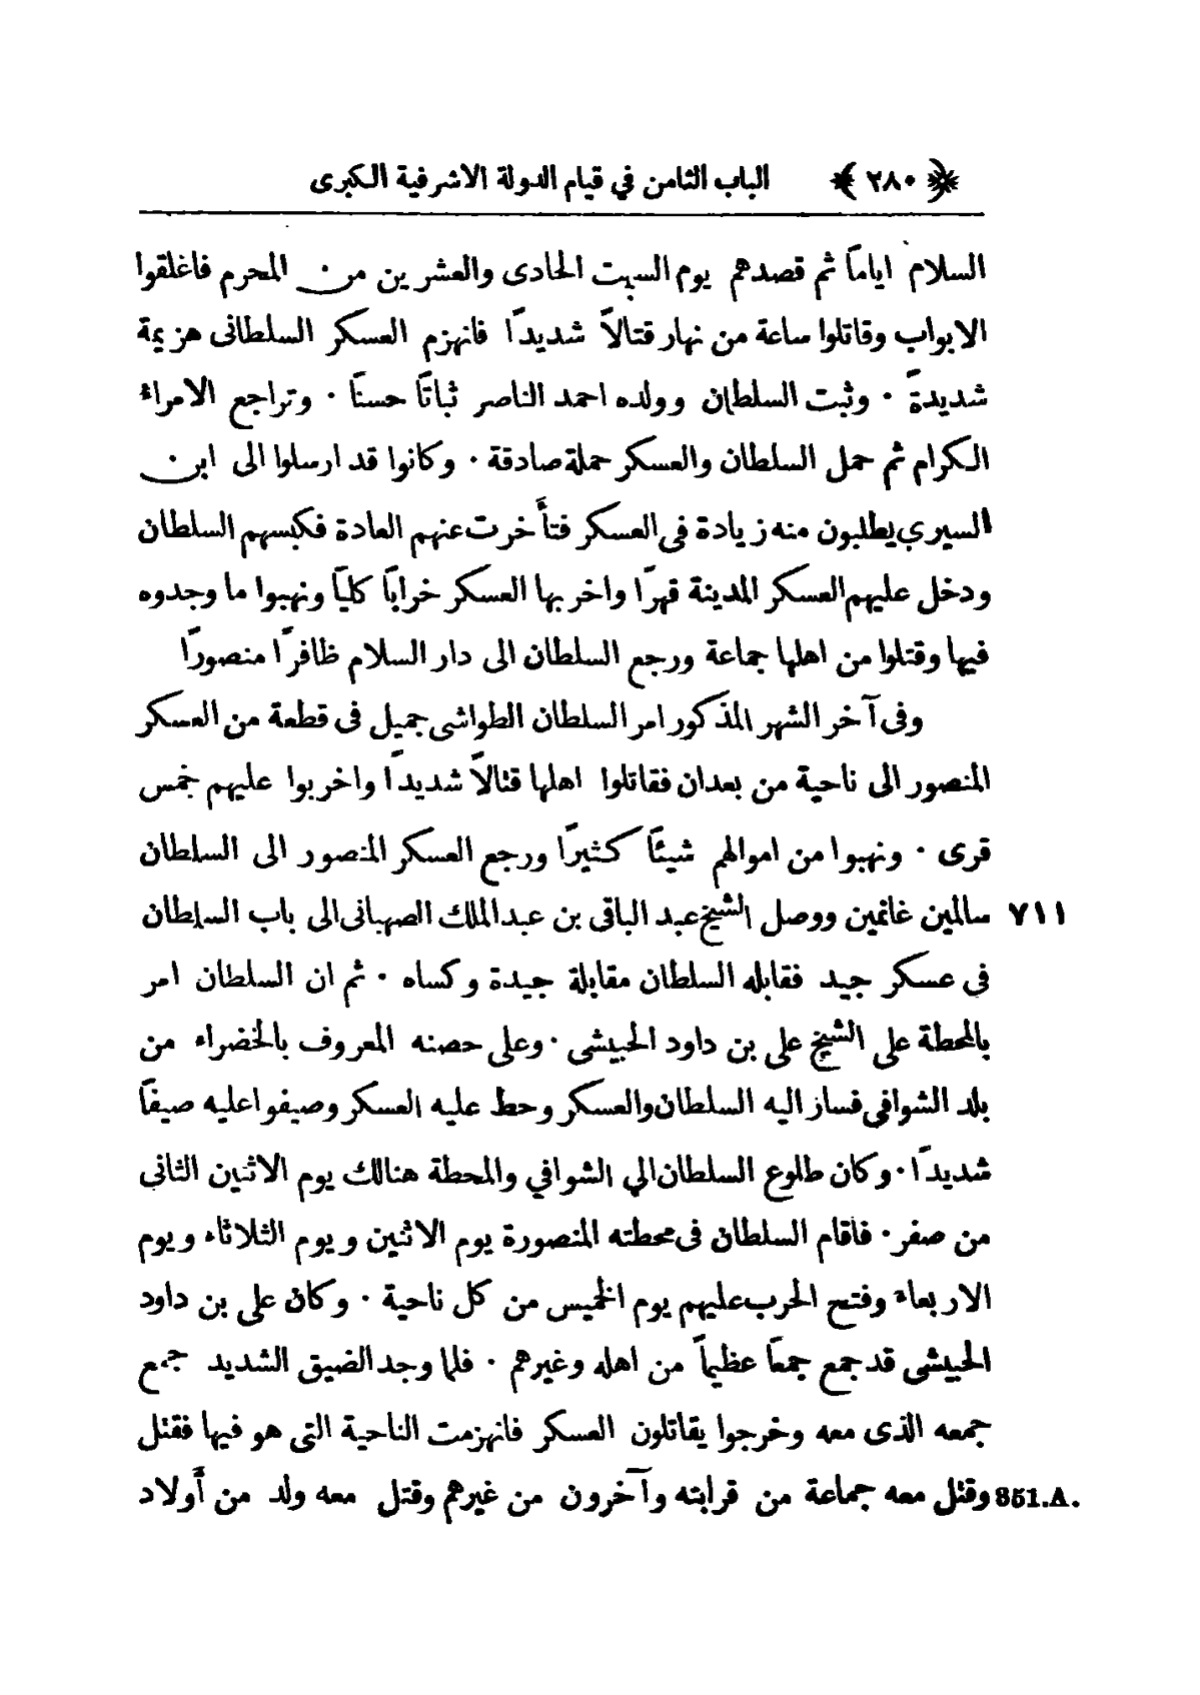 ﴿ ٢٨٠ ﴾ الباب الثامن في قيام الدولة الاشرفية الكبرى
السلام اياماً ثم قصدهم يوم السبت الحادى والعشرين من المحرم فاغلقوا
الابواب وقاتلوا ساعة من نهار قتالاً شديداً فانهزم العسكر السلطانى هزيمة
شديدةً ٠ وثبت السلطان وولده احمد الناصر ثباتاً حسناً ٠ وتراجع الامراء
الكرام ثم حمل السلطان والعسكر حملة صادقة ٠ وكانوا قد ارسلوا الى ابن
السيري يطلبون منه زيادة فى العسكر فتأخرت عنهم العادة فكبسهم السلطان
ودخل عليهم العسكر المدينة قهراً واخربها العسكر خراباً كلياً ونهبوا ما وجدوه
فيها وقتلوا من اهلها جماعة ورجع السلطان الى دار السلام ظافراً منصوراً
وفى آخر الشهر المذكور امر السلطان الطواشى جميل فى قطعة من العسكر
المنصور الى ناحية من بعدان فقاتلوا اهلها قتالاً شديداً واخربوا عليهم خمس
قرى ٠ ونهبوا من اموالهم شيئاً كثيراً ورجع العسكر المنصور الى السلطان
٧١١ سالمين غانمين ووصل الشيخ عبد الباقى بن عبد الملك الصهبانى الى باب السلطان
فى عسكر جيد فقابله السلطان مقابلة جيدة وكساه ٠ ثم ان السلطان امر
بالمحطة على الشيخ على بن داود الحبيشى ٠ وعلى حصنه المعروف بالخضراء من
بلد الشوافي فساز اليه السلطان والعسكر وحط عليه العسكر وصيفوا عليه صيفاً
شديداً ٠ وكان طلوع السلطان الي الشوافي والمحطة هنالك يوم الاثنين الثانى
من صفر ٠ فاقام السلطان فى محطته المنصورة يوم الاثنين ويوم الثلاثاء ويوم
الاربعاء وفتح الحرب عليهم يوم الخميس من كل ناحية ٠ وكان على بن داود
الحبيشى قد جمع جمعاً عظيماً من اهله وغيرهم ٠ فلما وجد الضيق الشديد جمع
جمعه الذى معه وخرجوا يقاتلون العسكر فانهزمت الناحية التى هو فيها فقتل
وقتل معه جماعة من قرابته وآخرون من غيرهم وقتل معه ولد من أولاد 351.A.